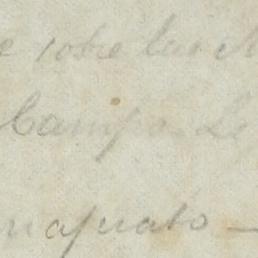 e sobre las M
Campo. Le
najuato —